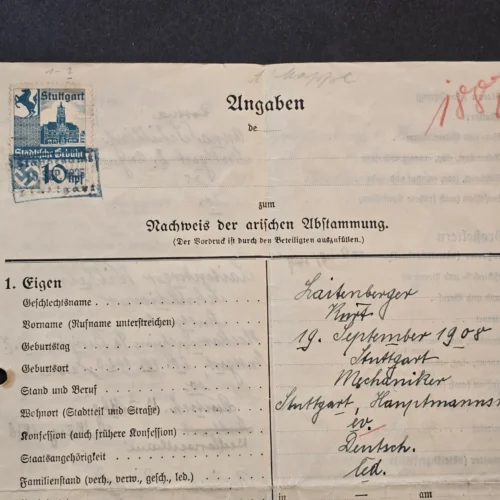 Stuttgart
Städtische Gebühr
10 Rpf
Angaben
de
zum
Nachweis der arischen Abstammung.
(Der Vordruck ist durch den Beteiligten auszufüllen.)
1. Eigen
Geschlechtsname Laitenberger
Vorname (Rufname unterstreichen) Kurt
Geburtstag 19. September 1908
Geburtsort Stuttgart
Stand und Beruf Mechaniker
Wohnort (Stadtteil und Straße) Stuttgart, Hauptmanns
Konfession (auch frühere Konfession) ev.
Staatsangehörigkeit Deutsch.
Familienstand (verh., verw., gesch., led.) led.
in — am